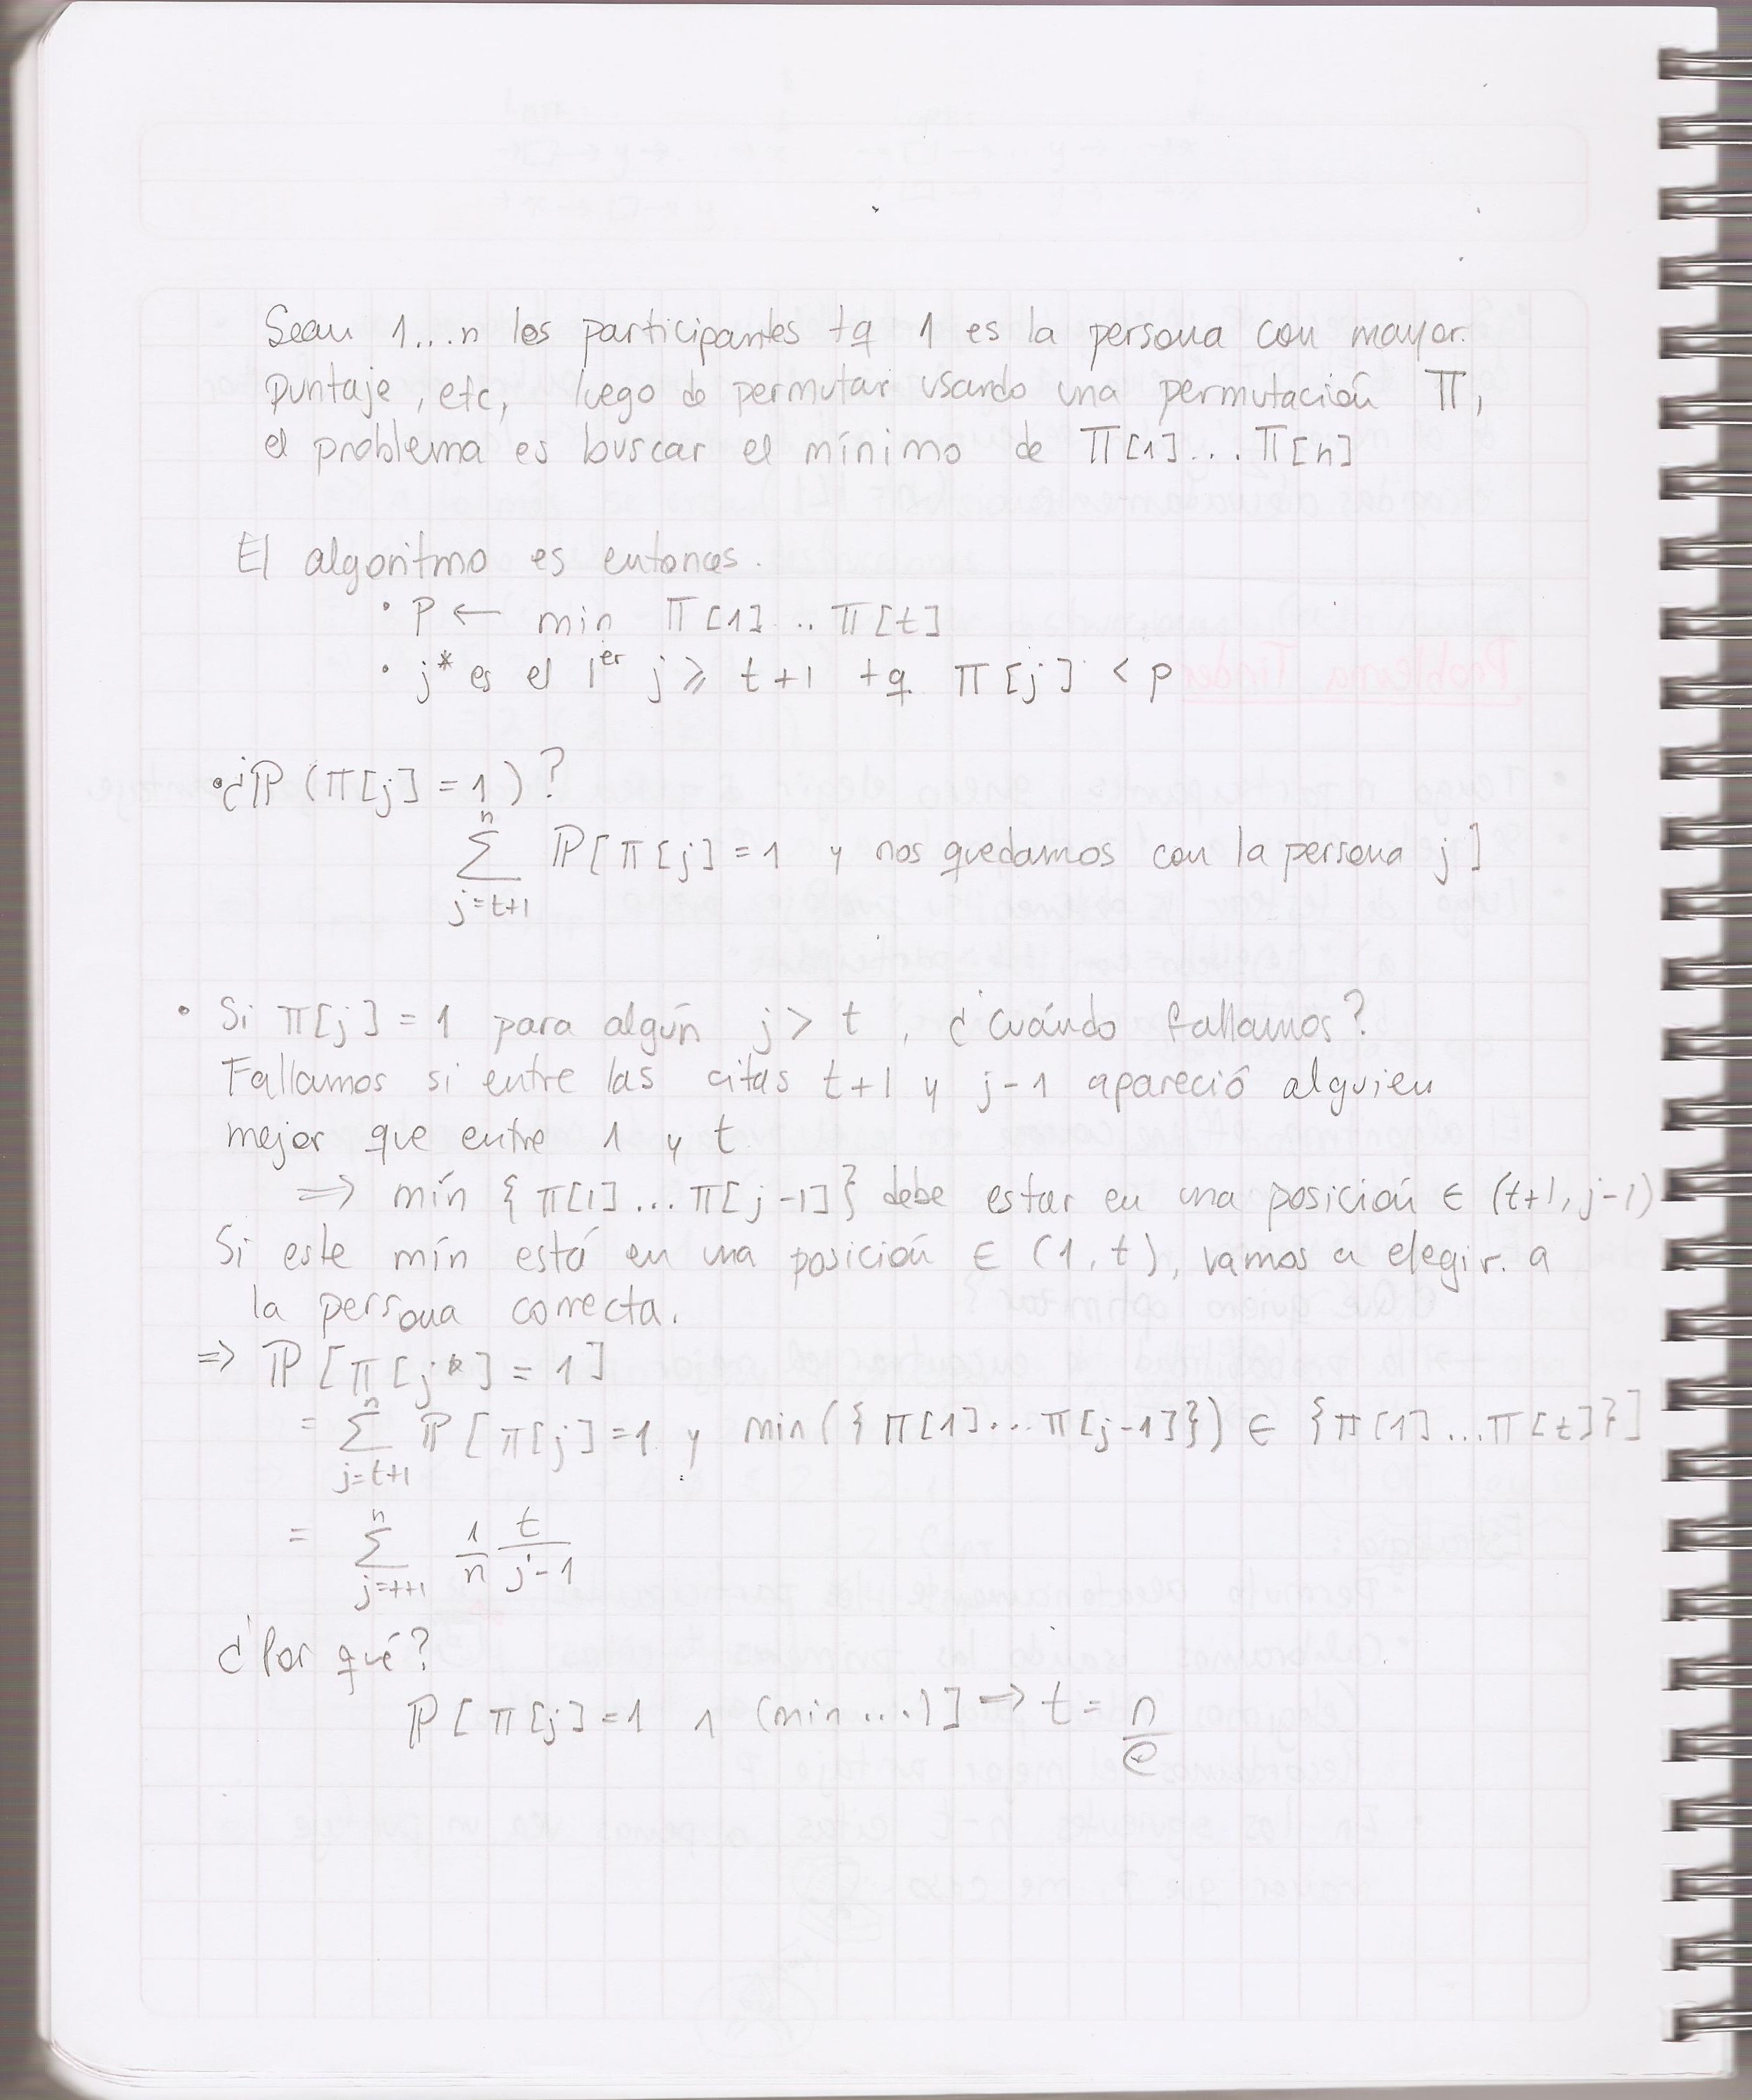 Sean 1...n los participantes tq 1 es la persona con mayor.
puntaje, etc, luego de permutar usando una permutación π,
el problema es buscar el mínimo de π[1]...π[n]
El algoritmo es entonces.
• P ← min π[1]...π[t]
• j* es el 1er j ⩾ t+1 tq π[j] < p
• ¿ℙ(π[j] = 1)?
∑_{j=t+1}^{n} ℙ[π[j] = 1 y nos quedamos con la persona j]
• Si π[j] = 1 para algún j > t, ¿Cuándo fallamos?
Fallamos si entre las citas t+1 y j-1 apareció alguien
mejor que entre 1 y t.
⇒ mín {π[1]...π[j-1]} debe estar en una posición ∈ (t+1, j-1)
Si este mín está en una posición ∈ (1, t), vamos a elegir. a
la persona correcta.
⇒ ℙ[π[j*] = 1]
= ∑_{j=t+1}^{n} ℙ[π[j]=1 y min({π[1]...π[j-1]}) ∈ {π[1]...π[t]}]
= ∑_{j=t+1}^{n} 1/n t/(j-1)
¿Por qué?
ℙ[π[j]=1 ∧ (min....)] ⇒ t = n/e